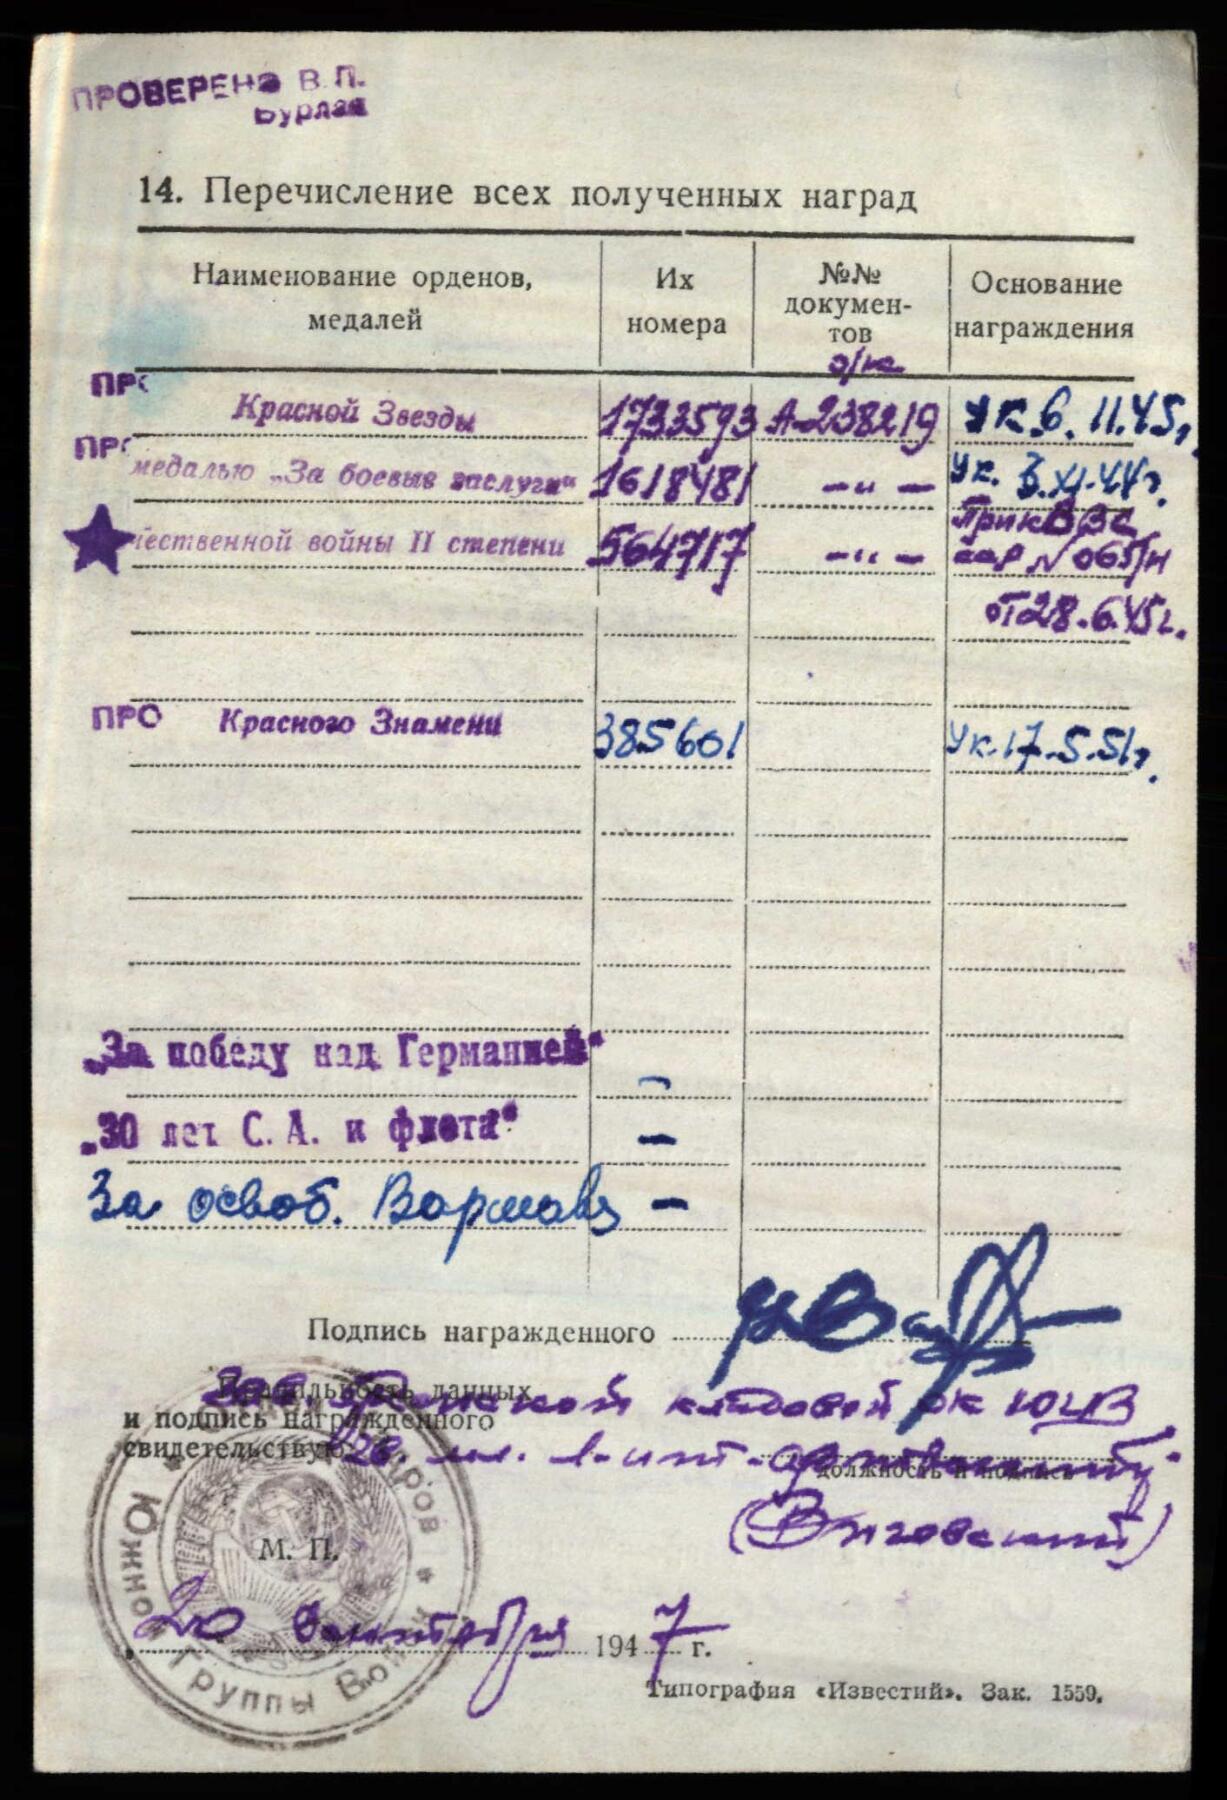 ПРОВЕРЕНО В.П.
Бурлак
14. Перечисление всех полученных наград
Наименование орденов, медалей
Их номера
№№ докумен-
тов
о/кн.
Основание награждения
ПРО
Красной Звезды 1733593 А-238219 Ук. 6. 11. 45г.
ПРО
медалью „За боевые заслуги“ 1618481 — „ — Ук. 3. XI. 44г.
чественной войны II степени 564717 — „ — Прик ВВС
№ 065/н
от 28. 6. 45г.
ПРО Красного Знамени 385601 Ук. 17. 5. 51г.
„За победу над Германией“ —
„30 лет С. А. и флота“ —
За освоб. Варшавы —
Подпись награжденного
Правильность данных
и подпись награжденного
свидетельствую
кладовой ЮГВ
должность и подпись
М. П.
Южно
Группы Войск
20 сентября 1947 г.
Типография «Известий». Зак. 1559.